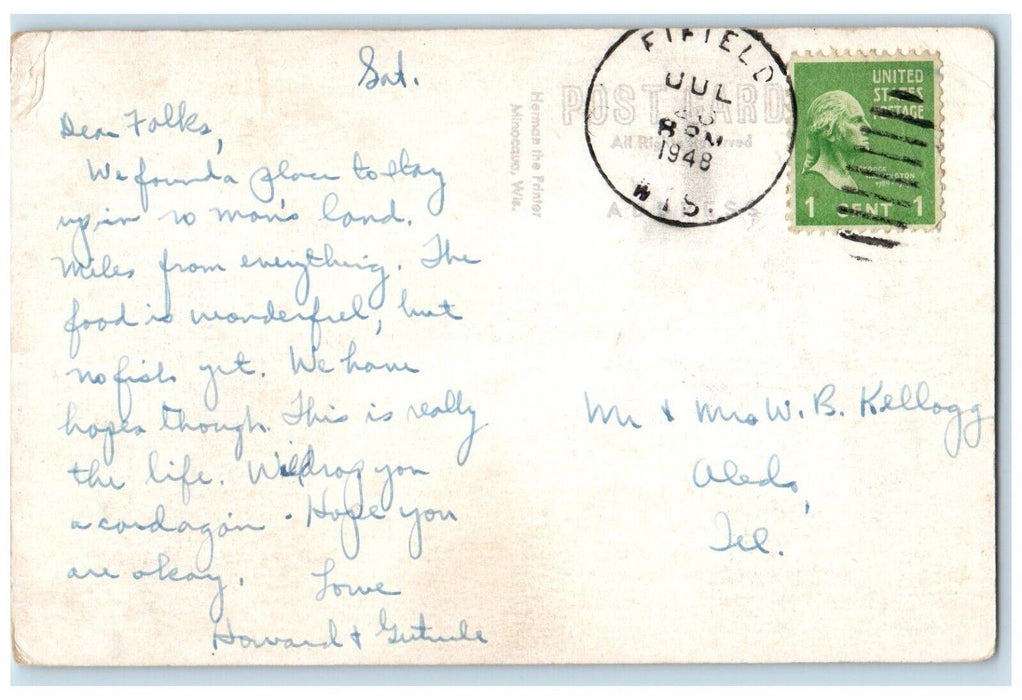 Sat.
Dear Folks,
We found a place to stay
up in no man's land.
Miles from everything. The
food is wonderful, but
no fish yet. We have
hopes though. This is really
the life. Will drop you
a card again. Hope you
are okay.
Love
Howard & Gertrude
Herman the Printer
Minocqua, Wis.
POST CARD
All Rights Reserved
ADDRESS
FIFIELD
JUL
8 PM
1948
WIS.
UNITED
STATES
POSTAGE
1 CENT 1
Mr & Mrs W. B. Kellogg
Aledo,
Ill.